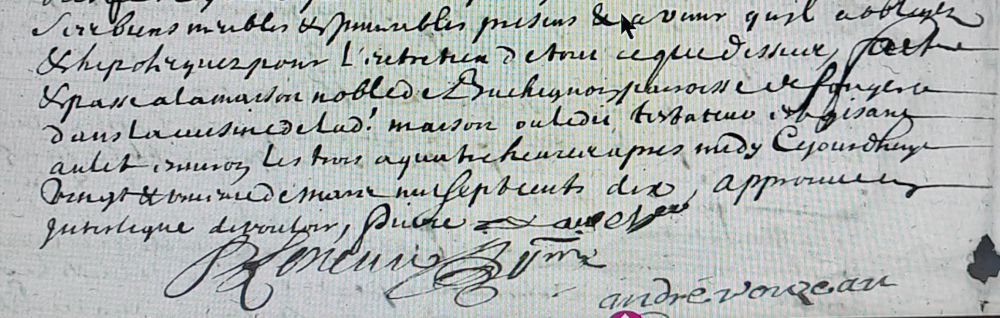 ses biens meubles & immeubles presens & avenir qu'il a obligez
& hepotequez pour l'entretien de tout ce que dessus, fait
& passe a la maison noble de paroisse de fougere
dans la cuisine de lad.t maison ou ledit testateur est gisant
au lit environ les trois a quatre heures apres midy Cejourdhuy
vingt & unieme de mars mil sept cents dix, approuve en
interligne de vouloir,
andré vouzeau